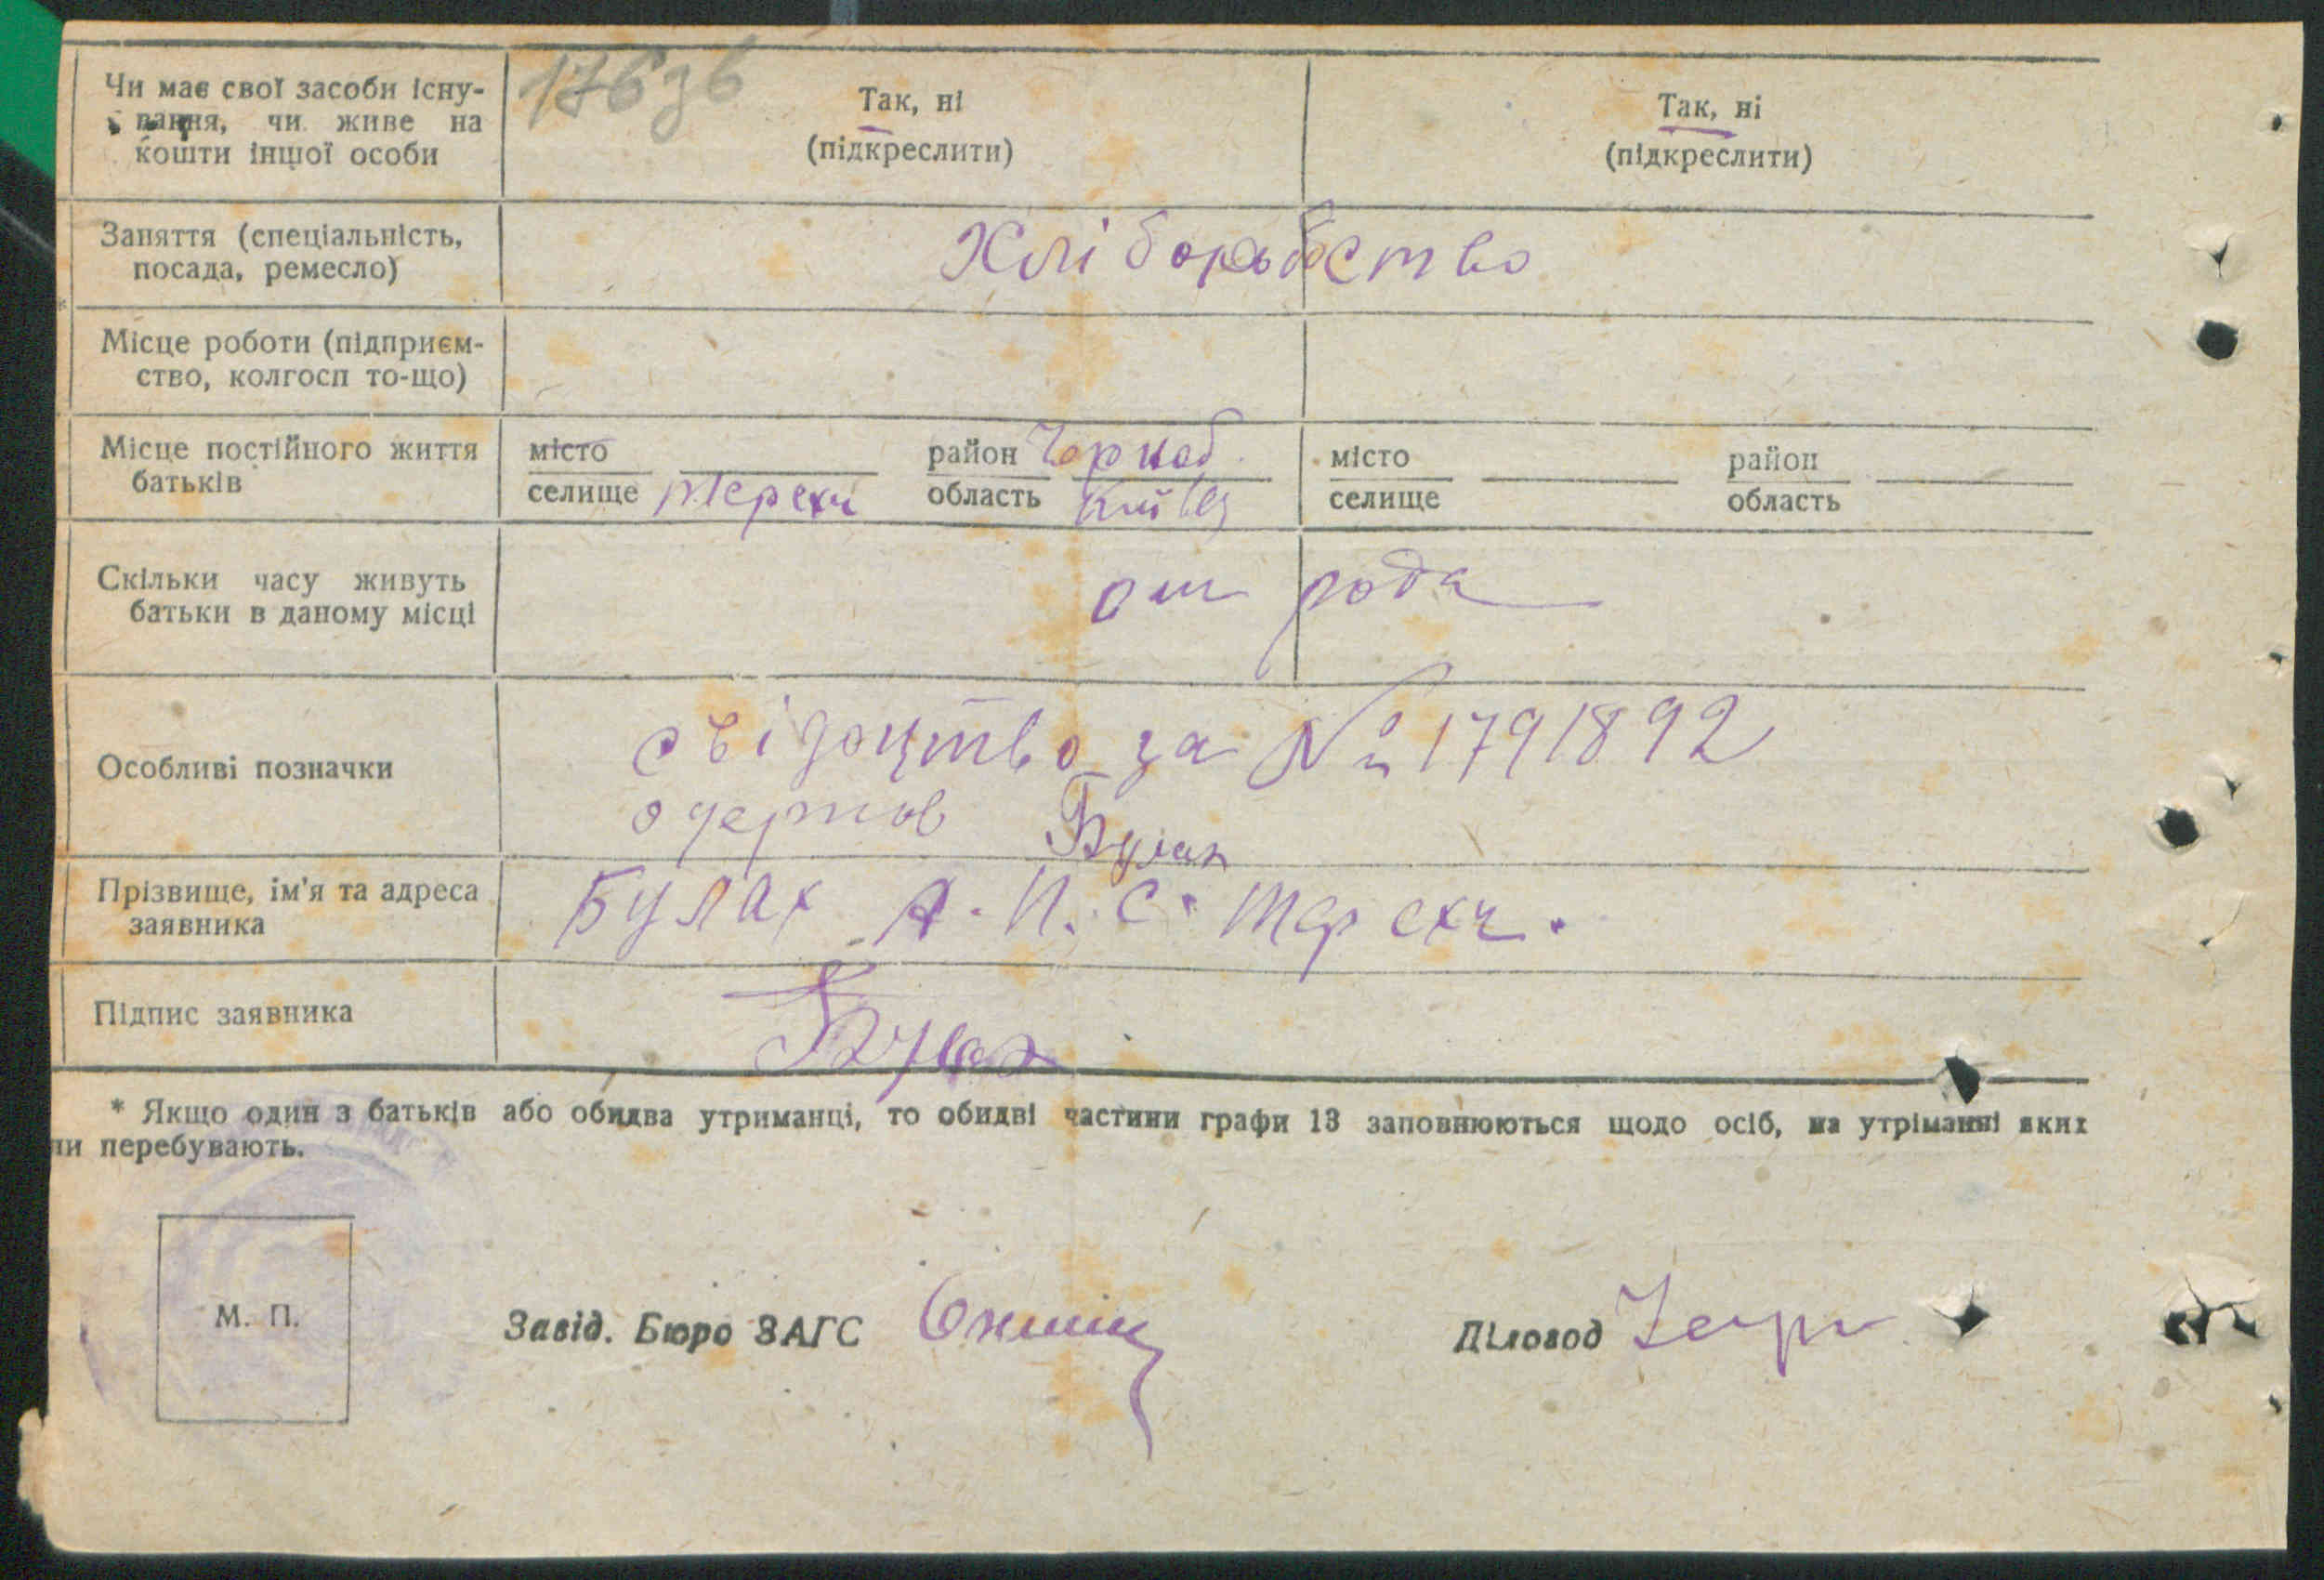 Чи має свої засоби існу-
вання, чи живе на
кошти іншої особи
176зв
Так, ні
(підкреслити)
Так, ні
(підкреслити)
Заняття (спеціальність,
посада, ремесло)
Хліборобство
Місце роботи (підприєм-
ство, колгосп то-що)
Місце постійного життя
батьків
місто
селище Терехи
район Чорноб.
область Київ
місто
селище
район
область
Скільки часу живуть
батьки в даному місці
от рода
Особливі позначки
свідоцтво за № 1791892
одержав Булах
Прізвище, ім'я та адреса
заявника
Булах А. П. с. Терехи.
Підпис заявника
Булах
* Якщо один з батьків або обидва утриманці, то обидві частини графи 13 заповнюються щодо осіб, на утріманні яких
ни перебувають.
М. П.
Завід. Бюро ЗАГС
Діловод